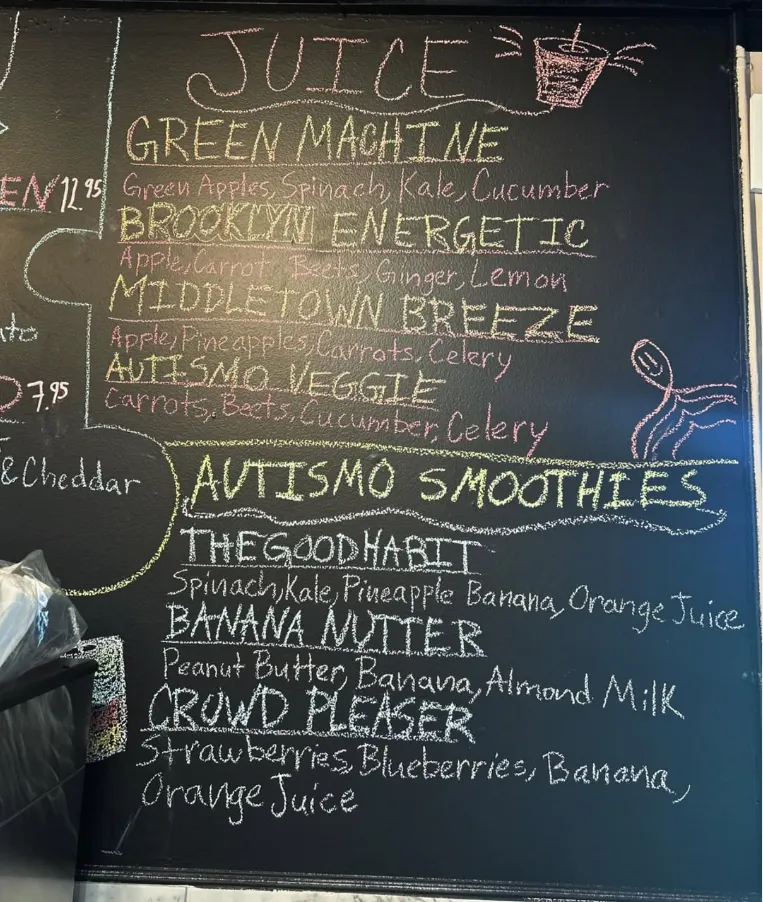 JUICE
GREEN MACHINE
Green Apples, Spinach, Kale, Cucumber
BROOKLYN ENERGETIC
Apple, Carrot Beets, Ginger, Lemon
MIDDLETOWN BREEZE
Apple, Pineapple, Carrots, Celery
AUTISMO VEGGIE
Carrots, Beets, Cucumber, Celery
AUTISMO SMOOTHIES
THEGOODHABIT
Spinach, Kale, Pineapple Banana, Orange Juice
BANANA NUTTER
Peanut Butter, Banana, Almond Milk
CROWD PLEASER
Strawberries, Blueberries, Banana,
Orange Juice
EN 12.95
7.95
& Cheddar